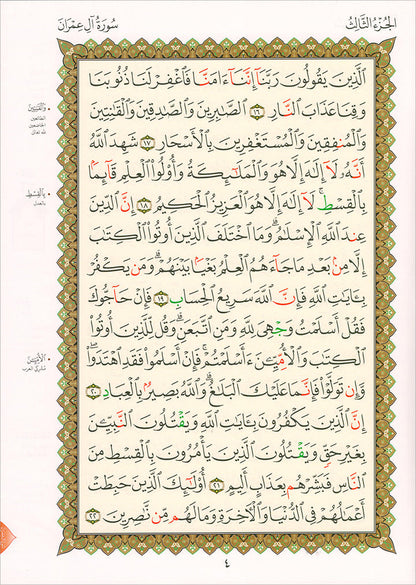 الجزء الثالث
سورة آل عمران
الَّذِينَ يَقُولُونَ رَبَّنَا إِنَّنَا ءَامَنَّا فَاغْفِرْ لَنَا ذُنُوبَنَا
وَقِنَا عَذَابَ النَّارِ ١٦ الصَّابِرِينَ وَالصَّادِقِينَ وَالْقَانِتِينَ
وَالْمُنفِقِينَ وَالْمُسْتَغْفِرِينَ بِالْأَسْحَارِ ١٧ شَهِدَ اللَّهُ
أَنَّهُ لَا إِلَهَ إِلَّا هُوَ وَالْمَلَائِكَةُ وَأُولُوا الْعِلْمِ قَائِمًا
بِالْقِسْطِ لَا إِلَهَ إِلَّا هُوَ الْعَزِيزُ الْحَكِيمُ ١٨ إِنَّ الدِّينَ
عِندَ اللَّهِ الْإِسْلَامُ وَمَا اخْتَلَفَ الَّذِينَ أُوتُوا الْكِتَابَ
إِلَّا مِن بَعْدِ مَا جَاءَهُمُ الْعِلْمُ بَغْيًا بَيْنَهُمْ وَمَن يَكْفُرْ
بِئَايَاتِ اللَّهِ فَإِنَّ اللَّهَ سَرِيعُ الْحِسَابِ ١٩ فَإِنْ حَاجُّوكَ
فَقُلْ أَسْلَمْتُ وَجْهِيَ لِلَّهِ وَمَنِ اتَّبَعَنِ وَقُل لِّلَّذِينَ أُوتُوا
الْكِتَابَ وَالْأُمِّيِّينَ ءَأَسْلَمْتُمْ فَإِنْ أَسْلَمُوا فَقَدِ اهْتَدَوا
وَّإِن تَوَلَّوْا فَإِنَّمَا عَلَيْكَ الْبَلَاغُ وَاللَّهُ بَصِيرٌ بِالْعِبَادِ ٢٠
إِنَّ الَّذِينَ يَكْفُرُونَ بِئَايَاتِ اللَّهِ وَيَقْتُلُونَ النَّبِيِّينَ
بِغَيْرِ حَقٍّ وَيَقْتُلُونَ الَّذِينَ يَأْمُرُونَ بِالْقِسْطِ مِنَ
النَّاسِ فَبَشِّرْهُم بِعَذَابٍ أَلِيمٍ ٢١ أُولَئِكَ الَّذِينَ حَبِطَتْ
أَعْمَالُهُمْ فِي الدُّنْيَا وَالْآخِرَةِ وَمَا لَهُم مِّن نَّاصِرِينَ ٢٢
وَالْقَانِتِينَ
الطائعين
الخاضعين
لله تعالى
بِالْقِسْطِ
بالعدل
الْأُمِّيِّينَ
مشركي العرب
٤